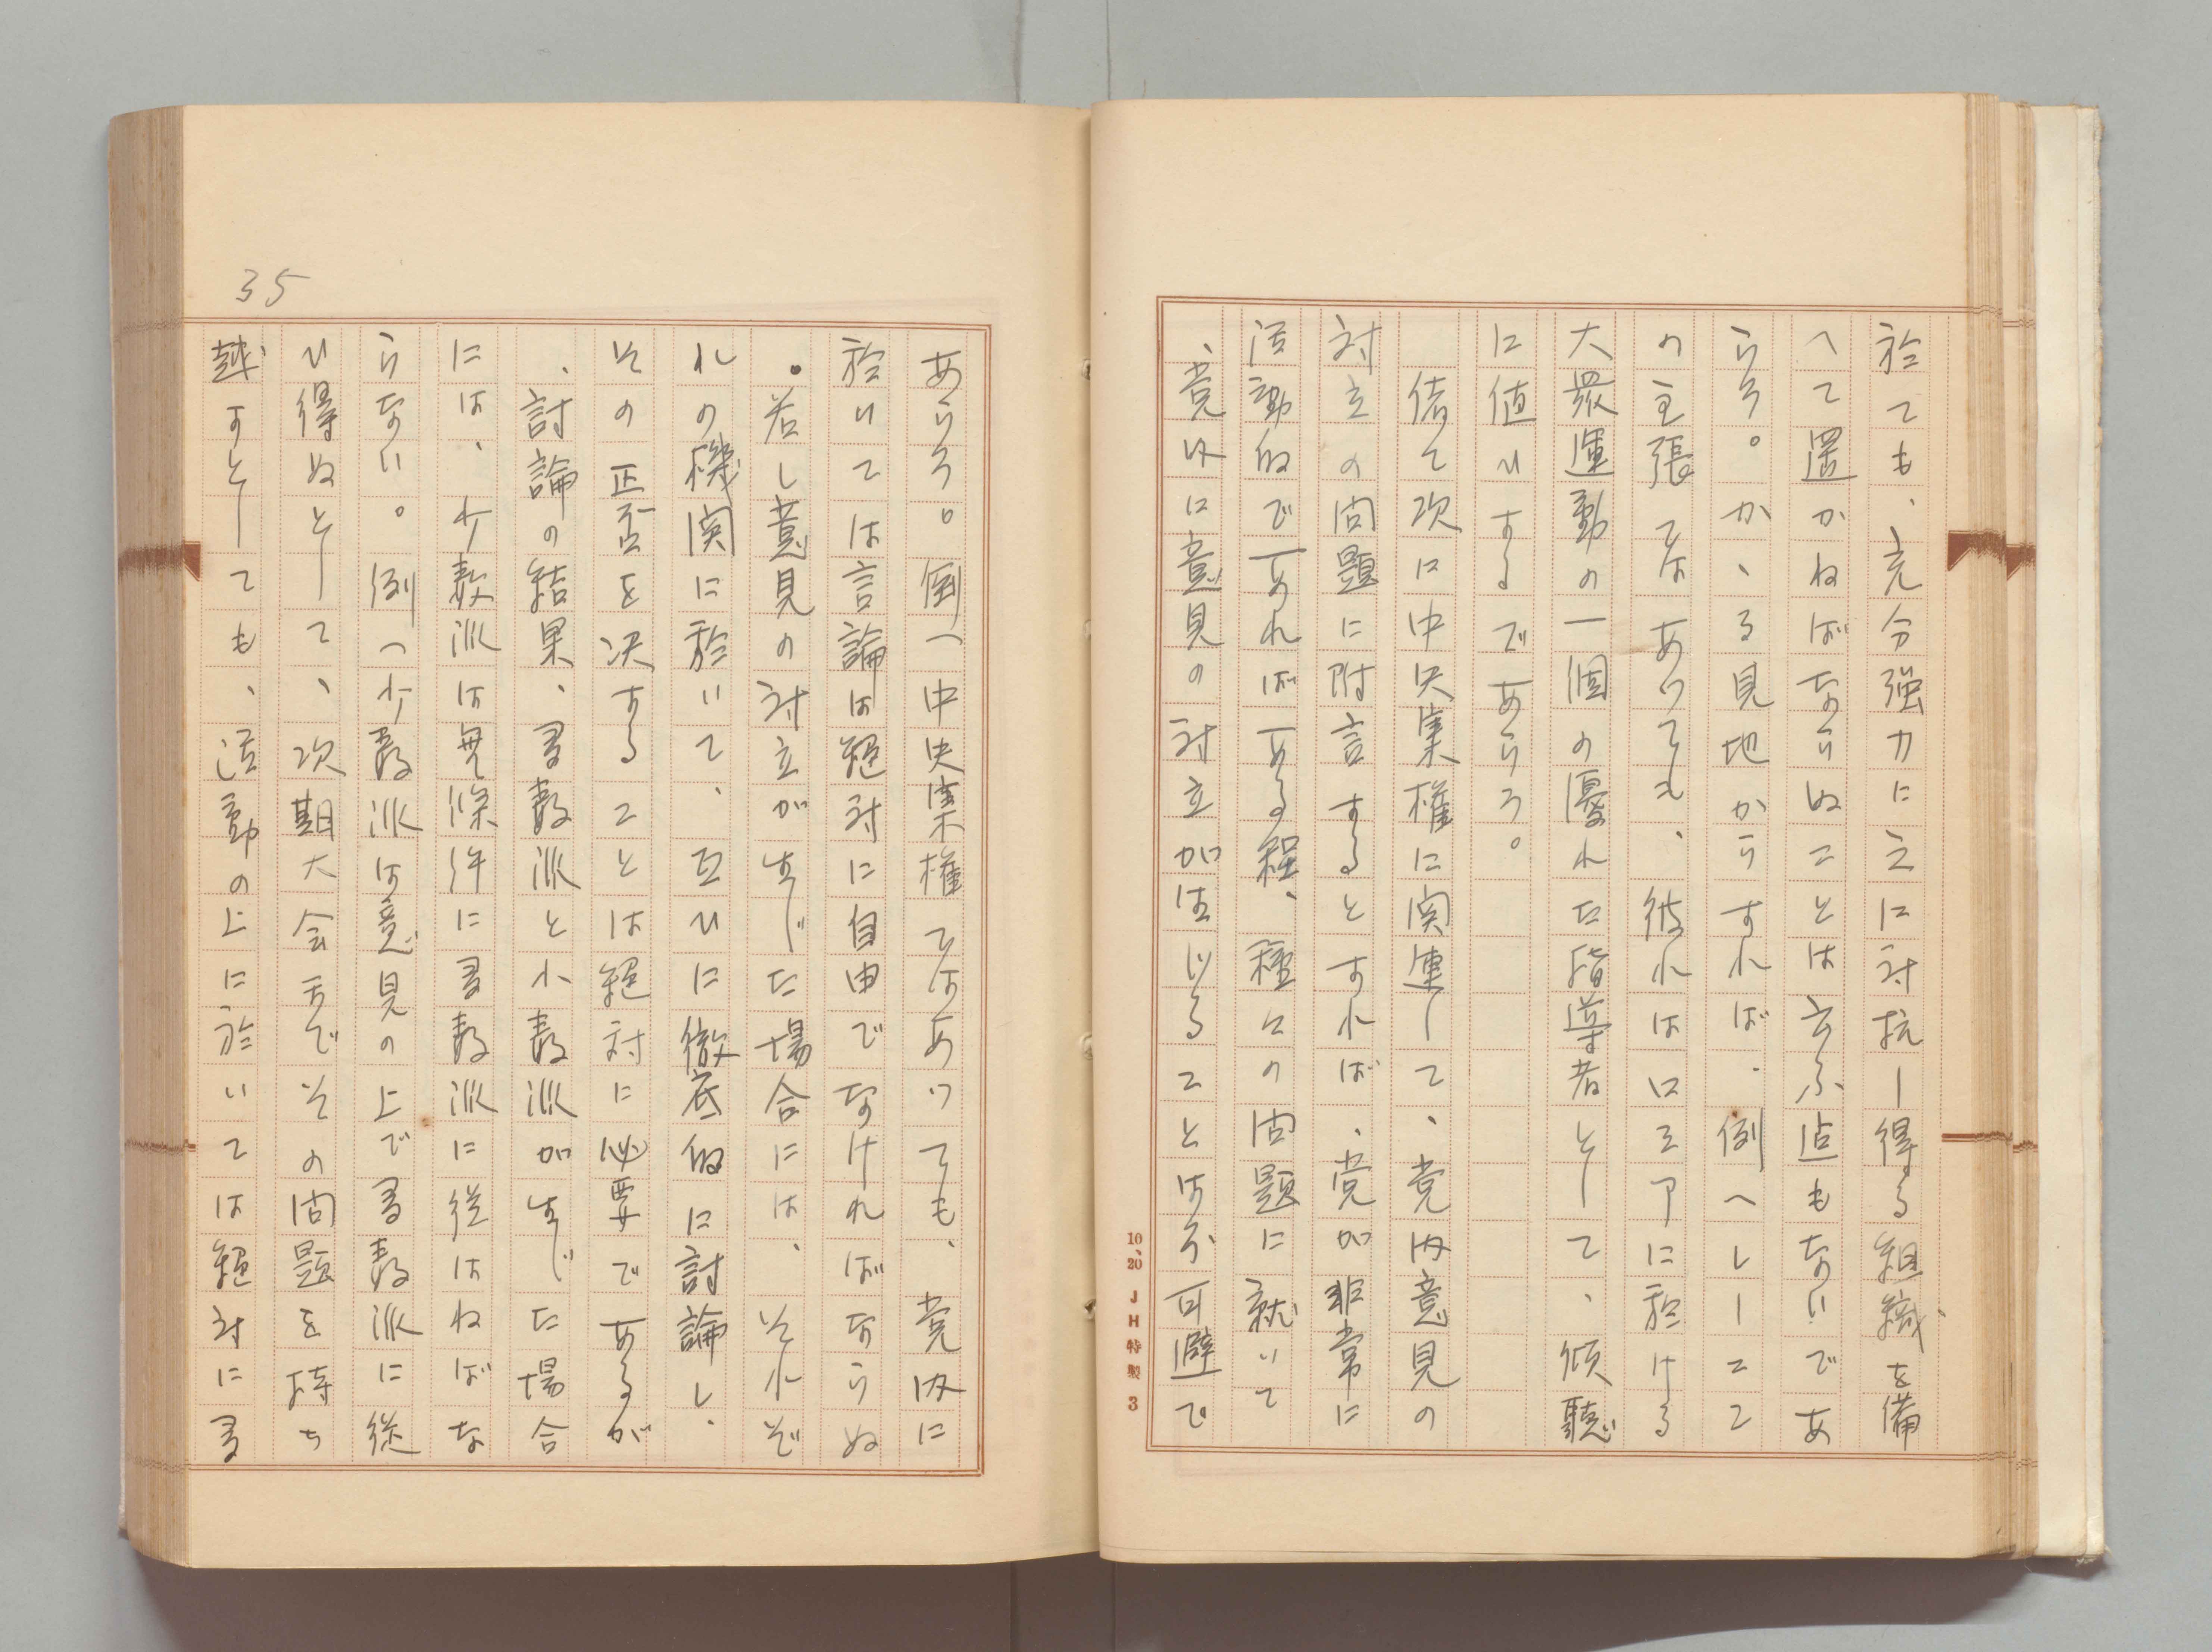 於ても、充分強力に之に対抗し得る組織を備
へて置かねばならぬことは云ふ迄もないであ
らう。かゝる見地からすれば、例へレーニン
の主張ではあつても、彼れはロシアに於ける
大衆運動の一個の優れた指導者として、傾聴
に値ひするであらう。
偖て次に中央集権に関連して、党内意見の
対立の問題に附言するとすれば、党が非常に
活動的であればある程、種々の問題に就いて
、党内に意見の対立が生じることは不可避で
10、20 JH特製 3
35
あらう。例へ中央集権ではあつても、党内に
於いては言論は絶対に自由でなければならぬ
。若し意見の対立が生じた場合には、それぞ
れの機関に於いて、互ひに徹底的に討論し、
その正否を決することは絶対に必要であるが
、討論の結果、多数派と小数派が生じた場合
には、少数派は無條件に多数派に従はねばな
らない。例へ少数派は意見の上で多数派に従
ひ得ぬとして、次期大会まてそての問題を持ち
越すとしても、活動の上に於いては絶対に多